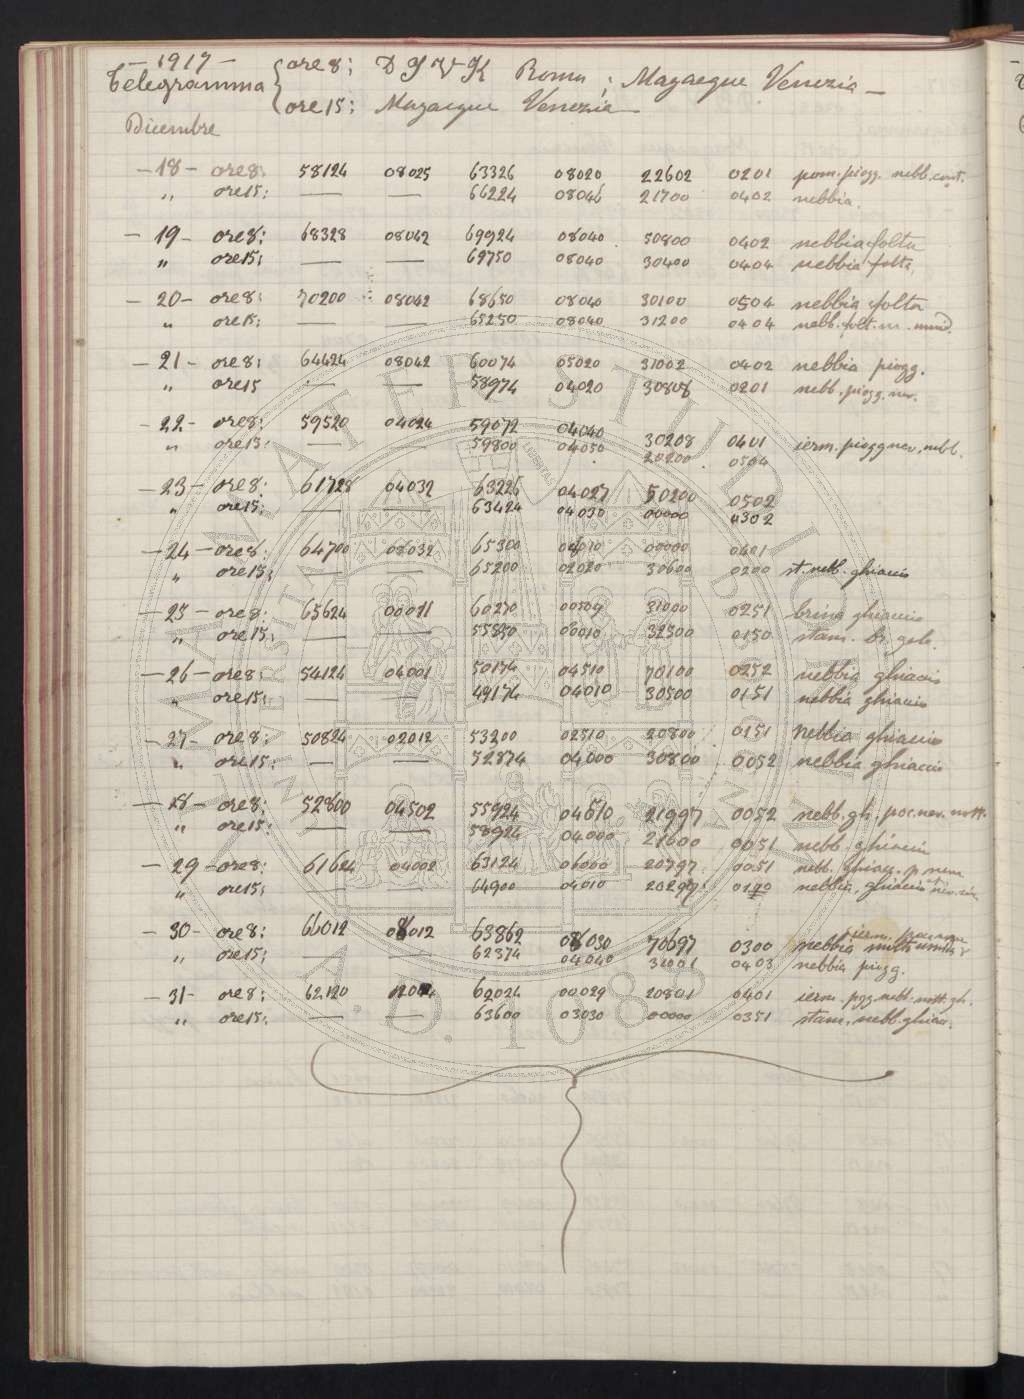 — 1917 —
Telegramma { ore 8: D I V K Roma ; Magaegue Venezia —
ore 15: Magaegue Venezia —
Dicembre
— 18 — ore 8: 58124 08025 63326 08020 22602 0201 pom. piogg. nebb. cont.
" ore 15: — — 66224 08046 21700 0402 nebbia.
— 19 — ore 8: 68328 08042 69924 08040 50800 0402 nebbia folta
" ore 15: — — 69750 08040 30400 0404 nebbia folta
— 20 — ore 8: 70200 08042 68650 08040 30100 0504 nebbia folta
" ore 15: — — 65250 08040 31200 0404 nebb. folt.
— 21 — ore 8: 64424 08042 60074 05020 31002 0402 nebbia piogg.
" ore 15 — — 58974 04020 30808 0201 nebb. piogg. nev.
— 22 — ore 8: 59520 04024 59072 04040 30208 0401 ierm. piogg nev. nebb.
" ore 15: — — 59800 04050 20200 0504
— 23 — ore 8: 61728 04032 63226 04027 50200 0502
" ore 15: — — 63424 04030 00000 0302
— 24 — ore 8: 64700 08032 65300 00010 00000 0401
" ore 15: — — 65200 02020 30600 0200 st. nebb. ghiaccio
— 25 — ore 8: 65624 00011 60270 00509 31000 0251 brina ghiaccio
" ore 15: — — 55850 00010 32500 0150 stam. br. gelo.
— 26 — ore 8: 54124 04001 50174 04510 70100 0252 nebbia ghiaccio
" ore 15: — 49174 04010 30500 0151 nebbia ghiaccio
— 27 — ore 8: 50824 02012 53200 02510 20800 0251 nebbia ghiaccio
" ore 15: — — 52874 04000 30800 0052 nebbia ghiaccio
— 28 — ore 8: 52800 04502 55924 04510 21997 0052 nebb. gh. poc. nev. nott.
" ore 15: — — 58924 04000 21600 0051 nebb. ghiaccio
— 29 — ore 8: 61624 04002 63124 06000 20797 0051 nebb. ghiacc. p. neve
" ore 15: — — 64900 04010 20297 nebbia, ghiaccio
— 30 — ore 8: 66012 08012 63862 08030 70697 0300 nebbia
" ore 15: — — 62374 04040 31001 0403 nebbia piogg.
— 31 — ore 8: 62120 62024 00029 20801 0401 ierm. pgg. nebb. nott. gh.
" ore 15: — — 63600 03030 00000 0351 stam. nebb. ghiacc.
ALMA MATER STUDIORUM
A.D. 1088